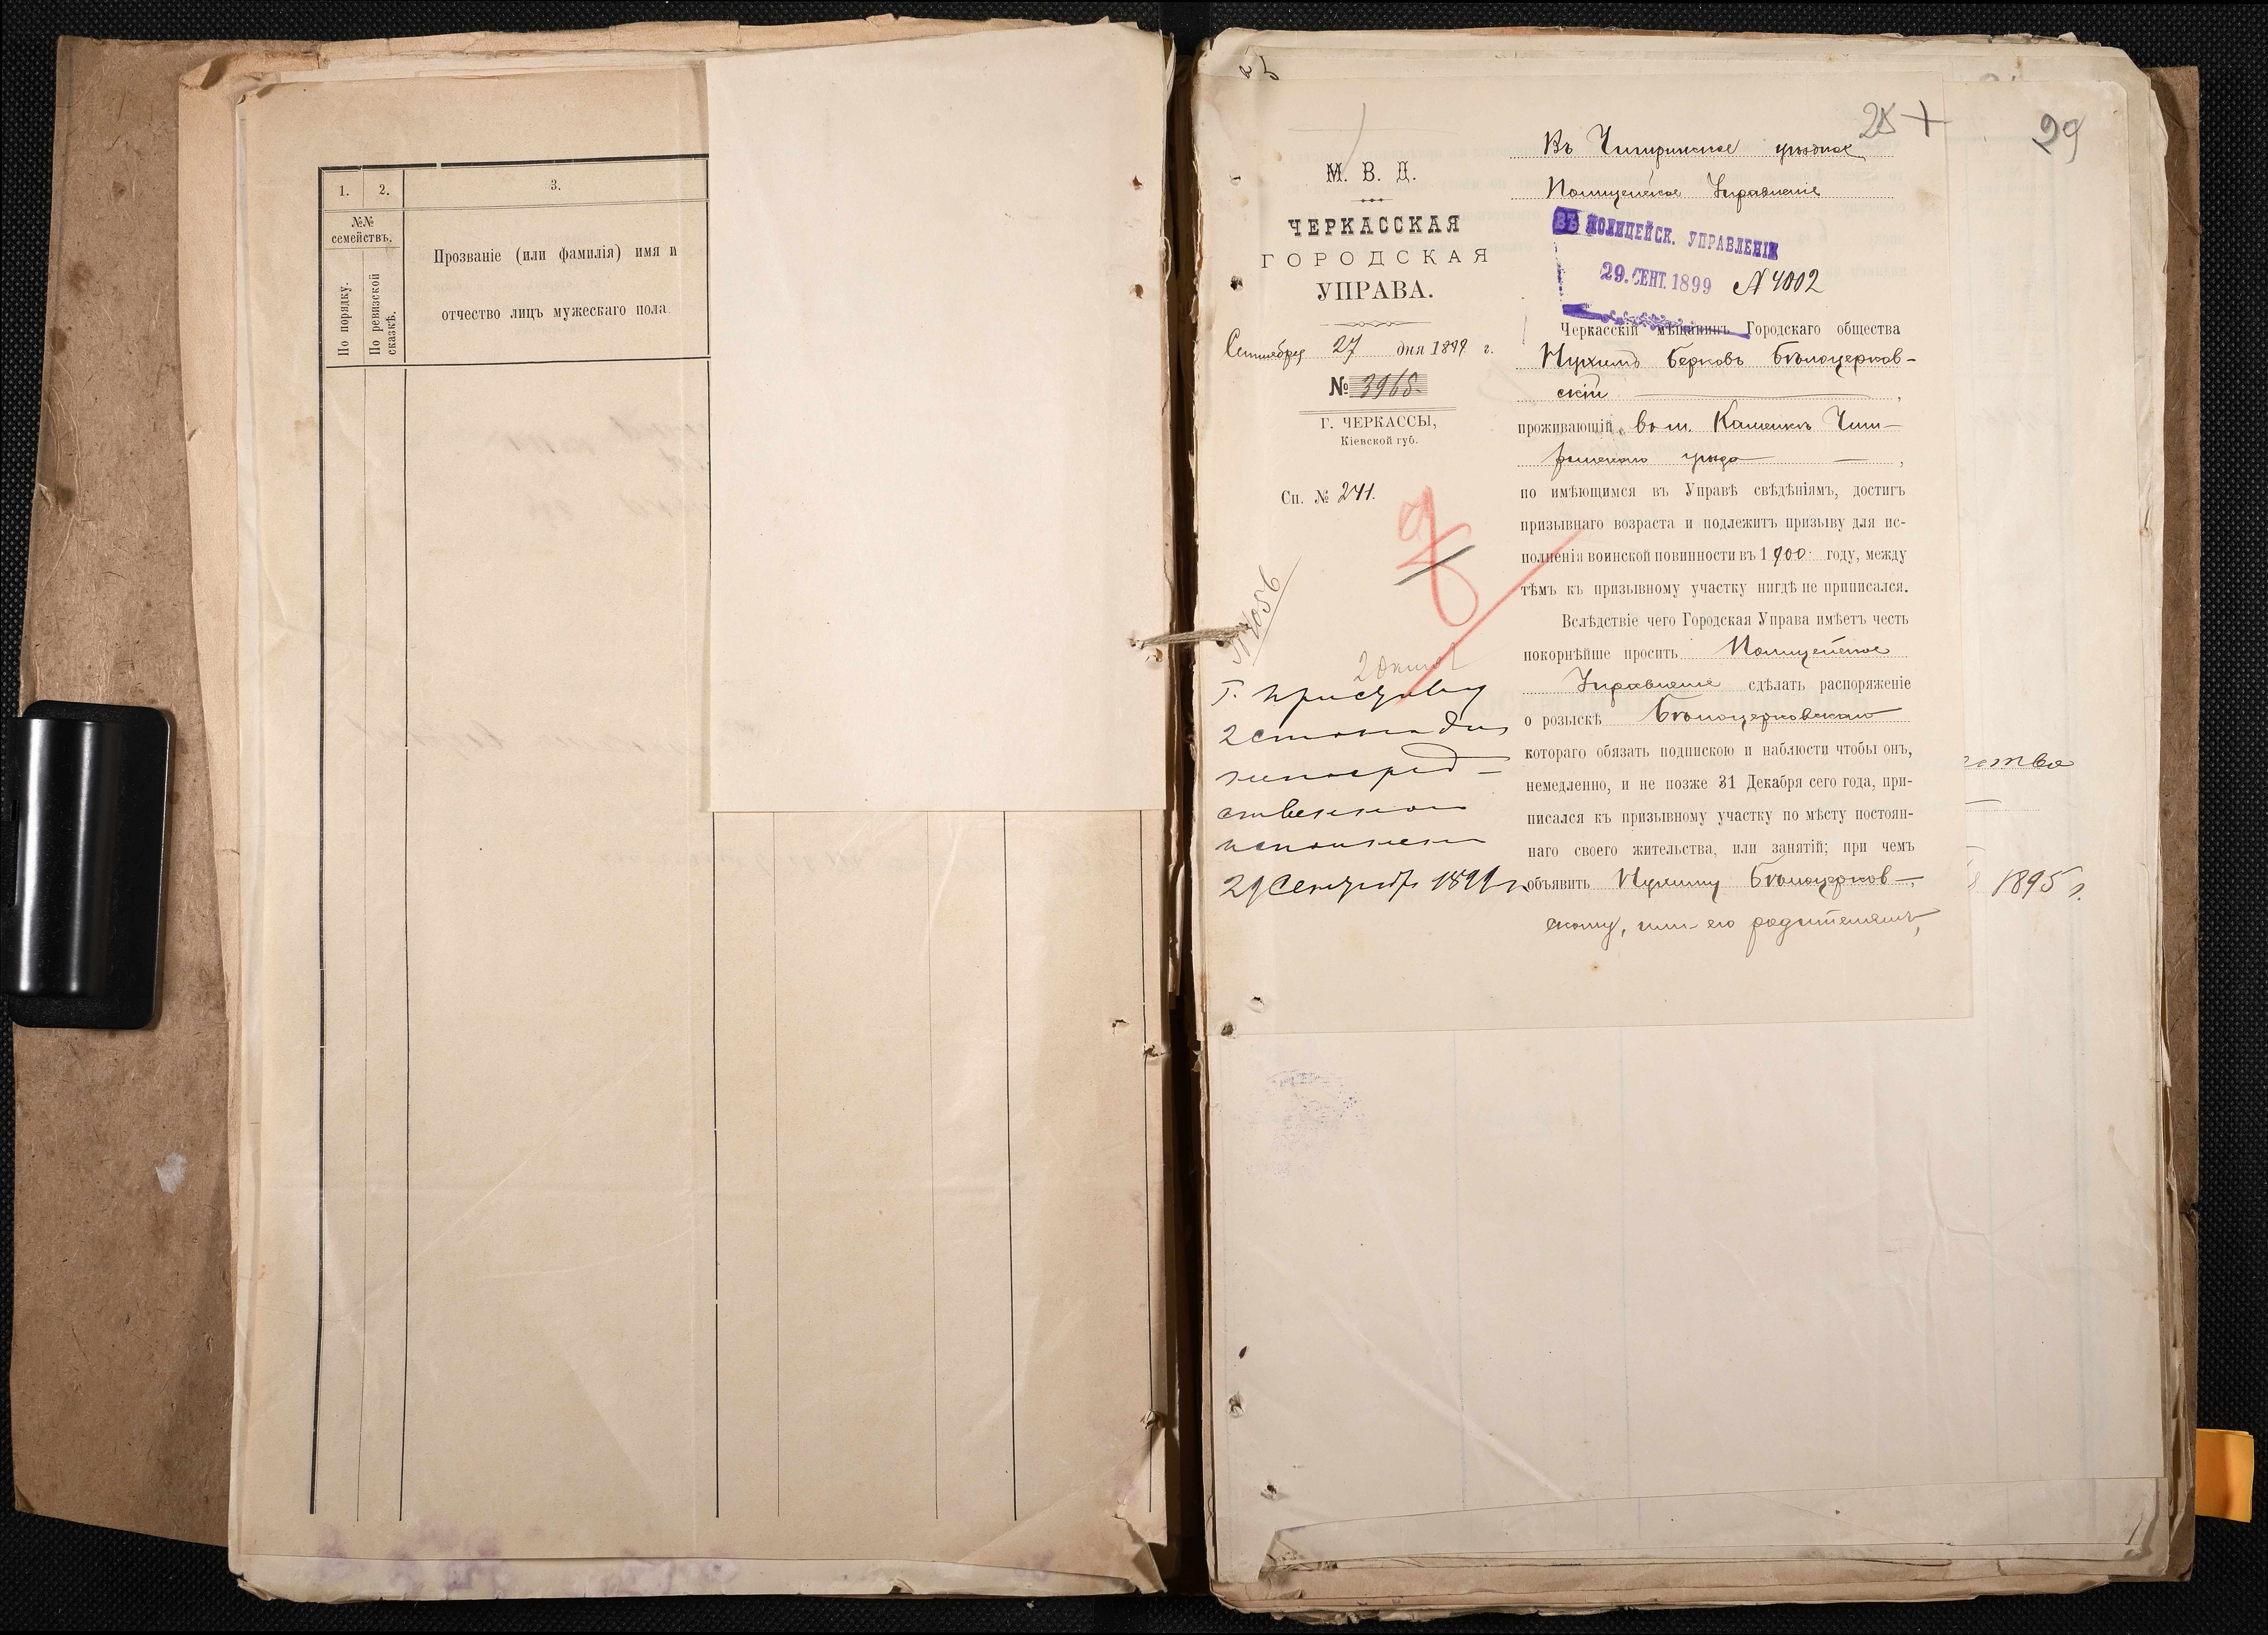 1.
2.
3.
№№
семействъ.
По порядку.
По ревизской
сказкѣ.
Прозваніе (или фамилія) имя и
отчество лицъ мужескаго пола.
25
29
М. В. Д.
ЧЕРКАССКАЯ
ГОРОДСКАЯ
УПРАВА.
Сентября 27 дня 1899 г.
№ 3968
Г. ЧЕРКАССЫ,
Кіевской губ.
Сп. № 241.
№ 4056
2 Октяб
Г. Приставу
2 стана для
непосред-
ственнаго
исполненія
29 Сентября 1899 г.
Въ Чигиринское уѣздное
Полицейское Управленіе
ВЪ ПОЛИЦЕЙСК. УПРАВЛЕНІИ
29. СЕНТ. 1899 № 4002
Черкасскій мѣщанинъ Городскаго общества
Нухимъ Берковъ Бѣлоцерков-
скій,
проживающій въ м. Каменкѣ Чиги-
ринскаго уѣзда,
по имѣющимся въ Управѣ свѣдѣніямъ, достигъ
призывнаго возраста и подлежитъ призыву для ис-
полненія воинской повинности въ 1900 году, между
тѣмъ къ призывному участку нигдѣ не приписался.
Вслѣдствіе чего Городская Управа имѣетъ честь
покорнѣйше просить Полицейское
Управленіе сдѣлать распоряженіе
о розыскѣ Бѣлоцерковскаго
котораго обязать подпискою и наблюсти чтобы онъ,
немедленно, и не позже 31 Декабря сего года, при-
писался къ призывному участку по мѣсту постоян-
наго своего жительства, или занятій; при чемъ
объявить Нухиму Бѣлоцерков-
скому, или его родителямъ,
1895 г.